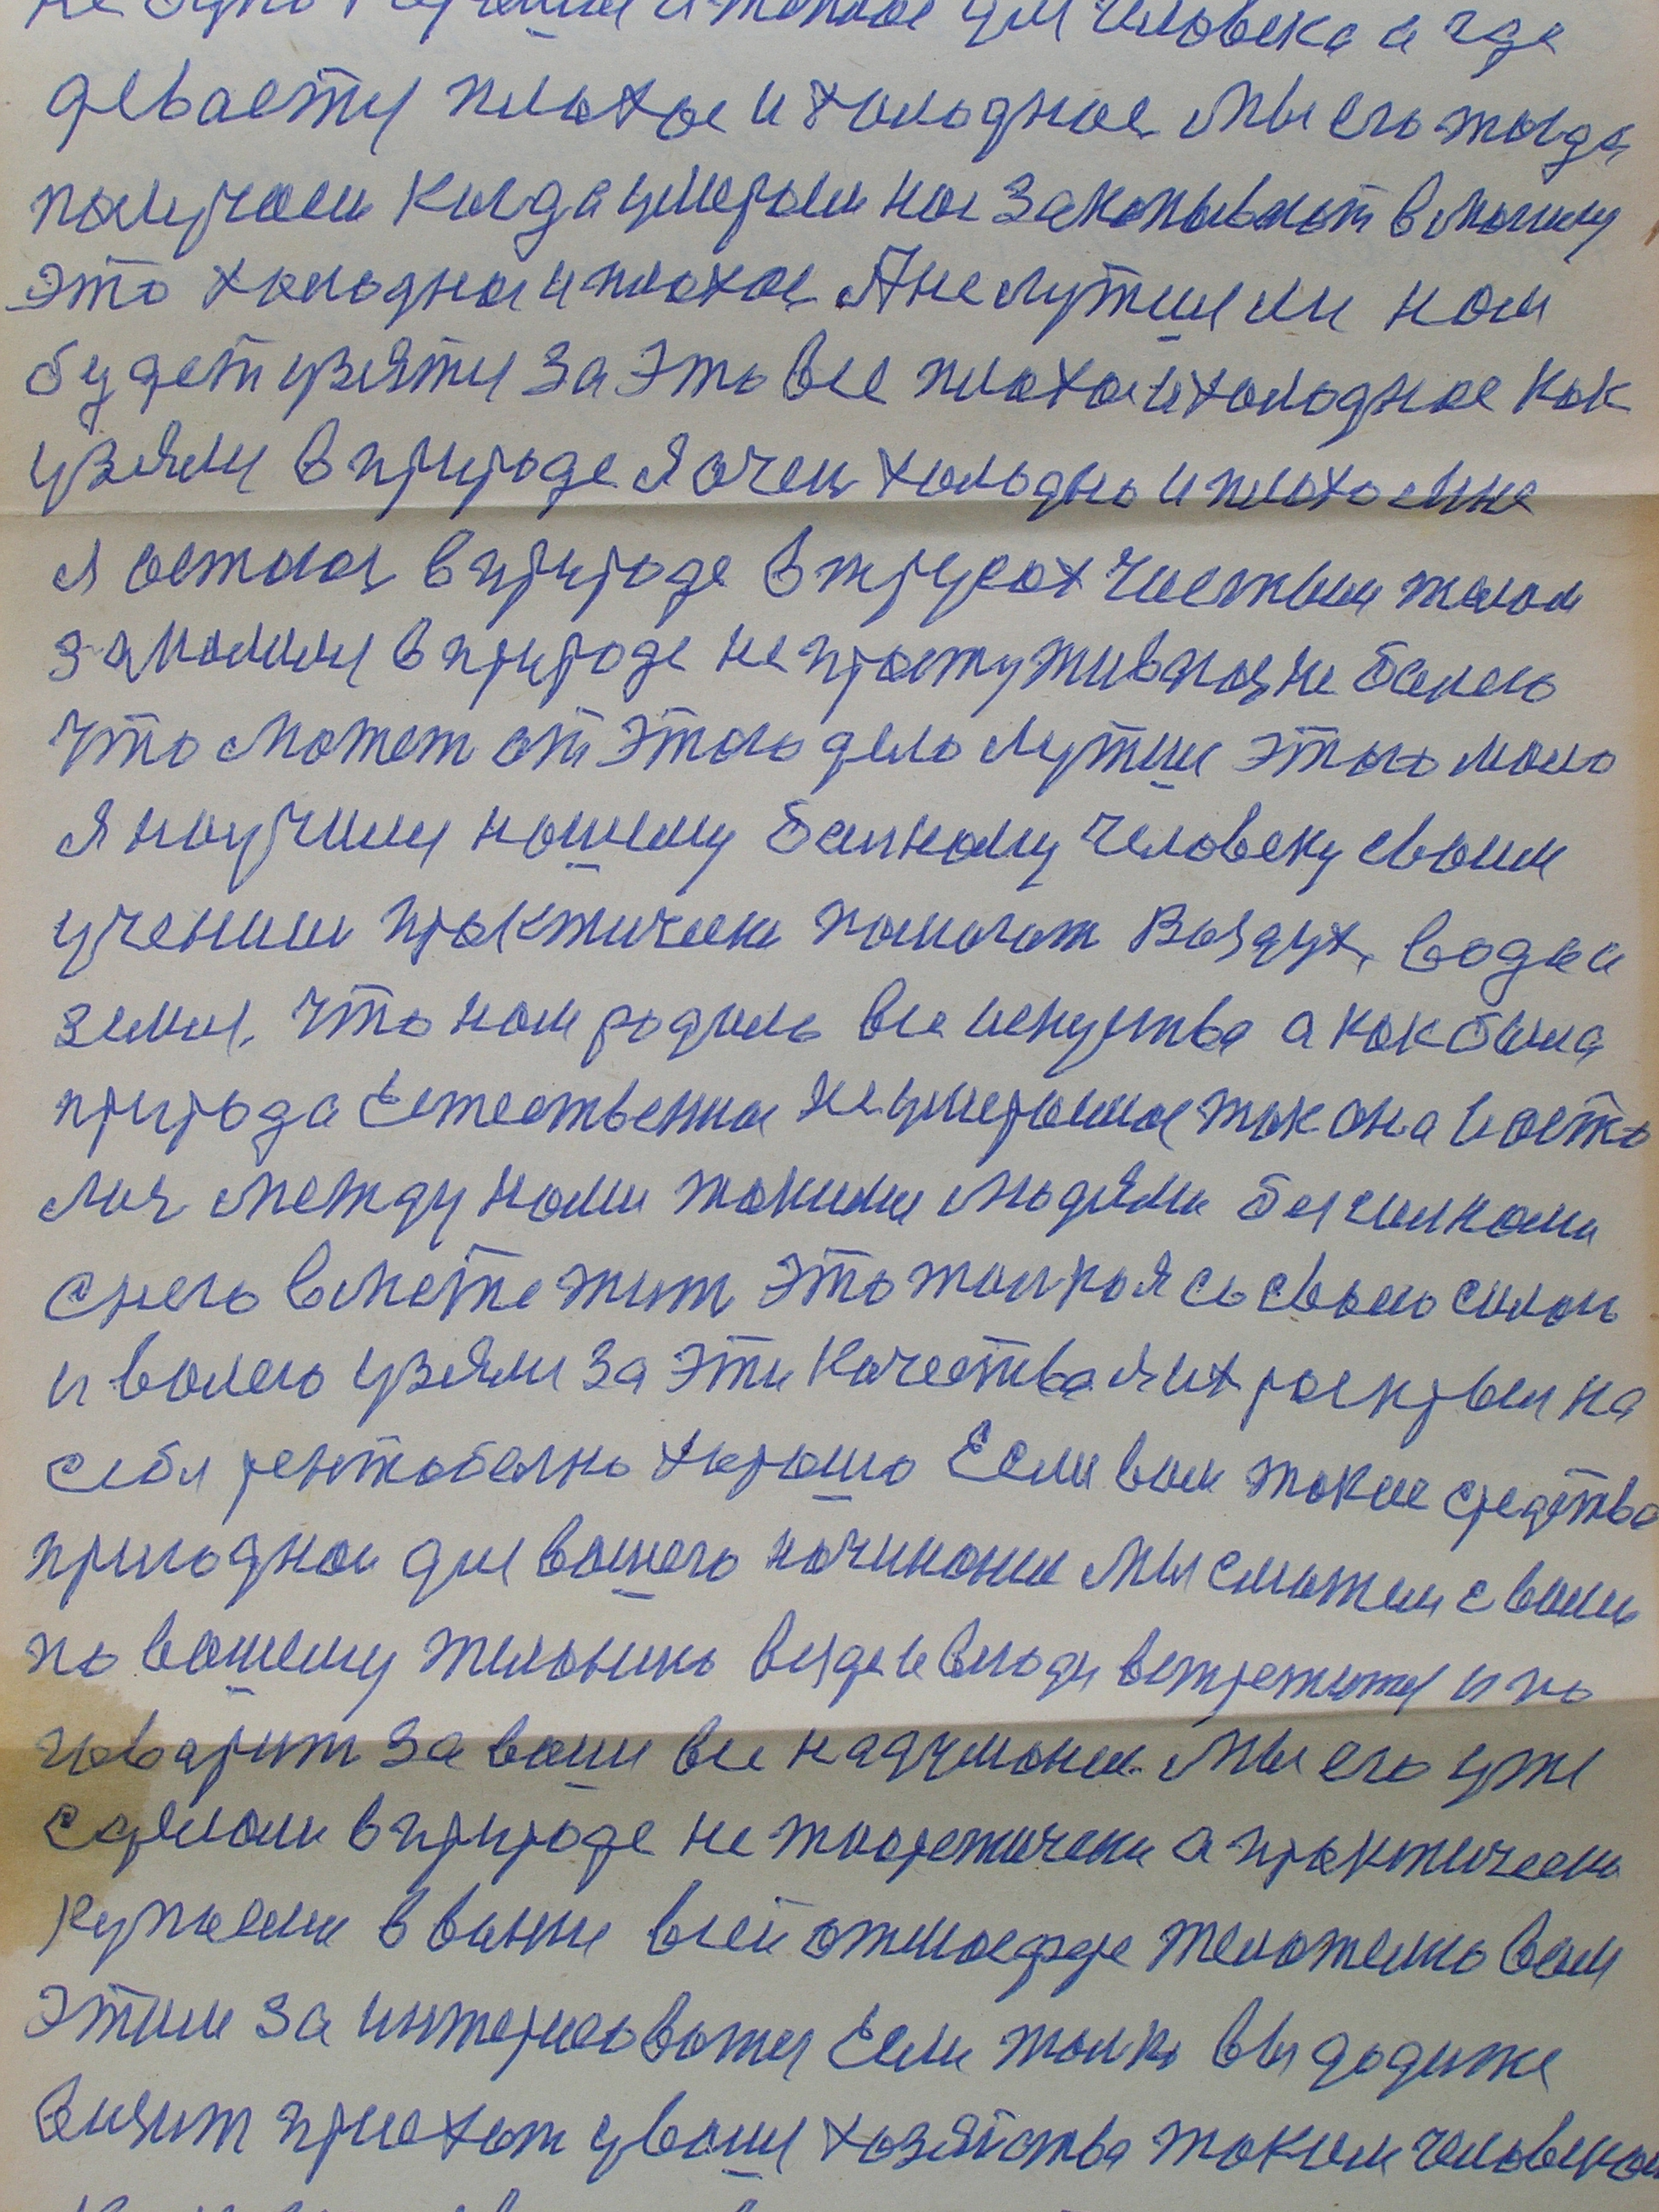 для человека а где
деваеты плохое и холодное Мы его тогда
получаем когда умераем нас закопывают в могилу
это холодное и плохое А не лутше ли нам
будет узяты за это все плохое и холодное как
узялы в природе Я очен холодно и плохо мне
я остался в природе в трусах чистым телом
зимою в природе не простуживаюся не болею
что может от этого дело лутше этого мало
Я научилы нашему больному человеку своим
учением практически помогат Воздух, вода и
земля. Что нам родило все искуства а как была
природа Естественная не умераемая так она и оста
лися между нами такими людями безсилками
с нею вместе жит это толко я со своею силою
и волею узялы за эти качества я их раскрыл на
себя рентобелно хорошо Если вам такие средства
пригодное для вашего начинание Мы сможем с вами
по вашему желанию везде и всюды встретится и по
говарит за ваши все надумание. Мы его уже
сделали в природе не теоретически а практически
купаемся в ванне всей атмосфере желателно вам
этим за интересоватся Если толко вы дадите
визит приехат у вашы хозяйства таким человеком